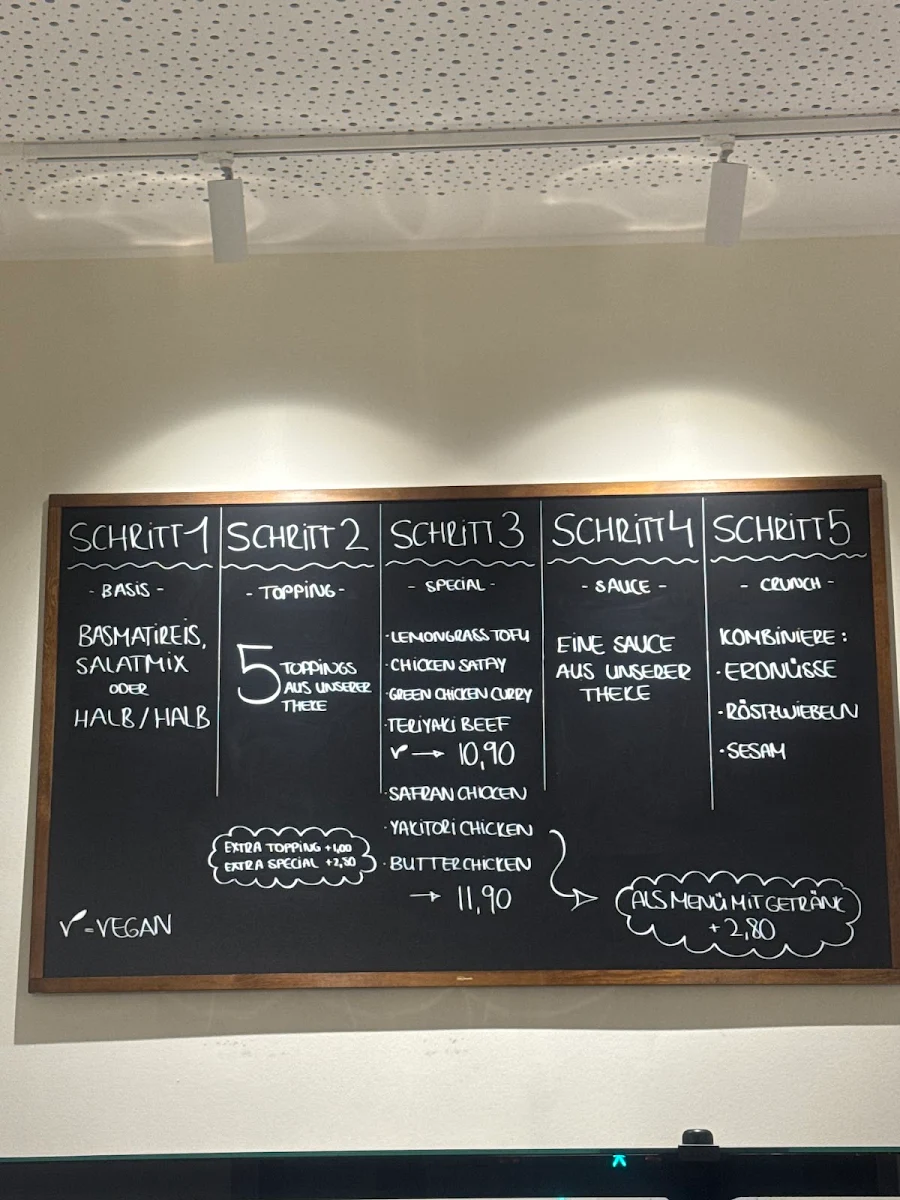 SCHRITT 1
- BASIS -
BASMATIREIS,
SALATMIX
ODER
HALB/HALB
SCHRITT 2
- TOPPING -
5 TOPPINGS
AUS UNSERER
THEKE
EXTRA TOPPING +1,00
EXTRA SPECIAL +2,80
SCHRITT 3
- SPECIAL -
· LEMONGRASS TOFU
· CHICKEN SATAY
· GREEN CHICKEN CURRY
· TERIYAKI BEEF
V → 10,90
· SAFRAN CHICKEN
· YAKITORI CHICKEN
· BUTTERCHICKEN
→ 11,90
SCHRITT 4
- SAUCE -
EINE SAUCE
AUS UNSERER
THEKE
SCHRITT 5
- CRUNCH -
KOMBINIERE :
· ERDNÜSSE
· RÖSTZWIEBELN
· SESAM
ALS MENÜ MIT GETRÄNK
+ 2,80
V = VEGAN